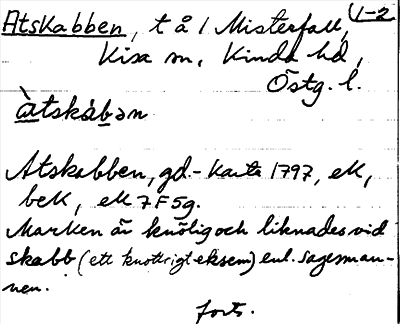 Atskabben, t å 1 Misterfall, 1-2
Kisa sn, Kinda hd,
Östg. l.
àtskàbən
Atskabben, gd.- karta 1797, eK,
beK, eK 7F5g.
Marken är knölig och liknades vid
skabb (ett knottrigt eksem) enl. sagesman-
nen.
forts.